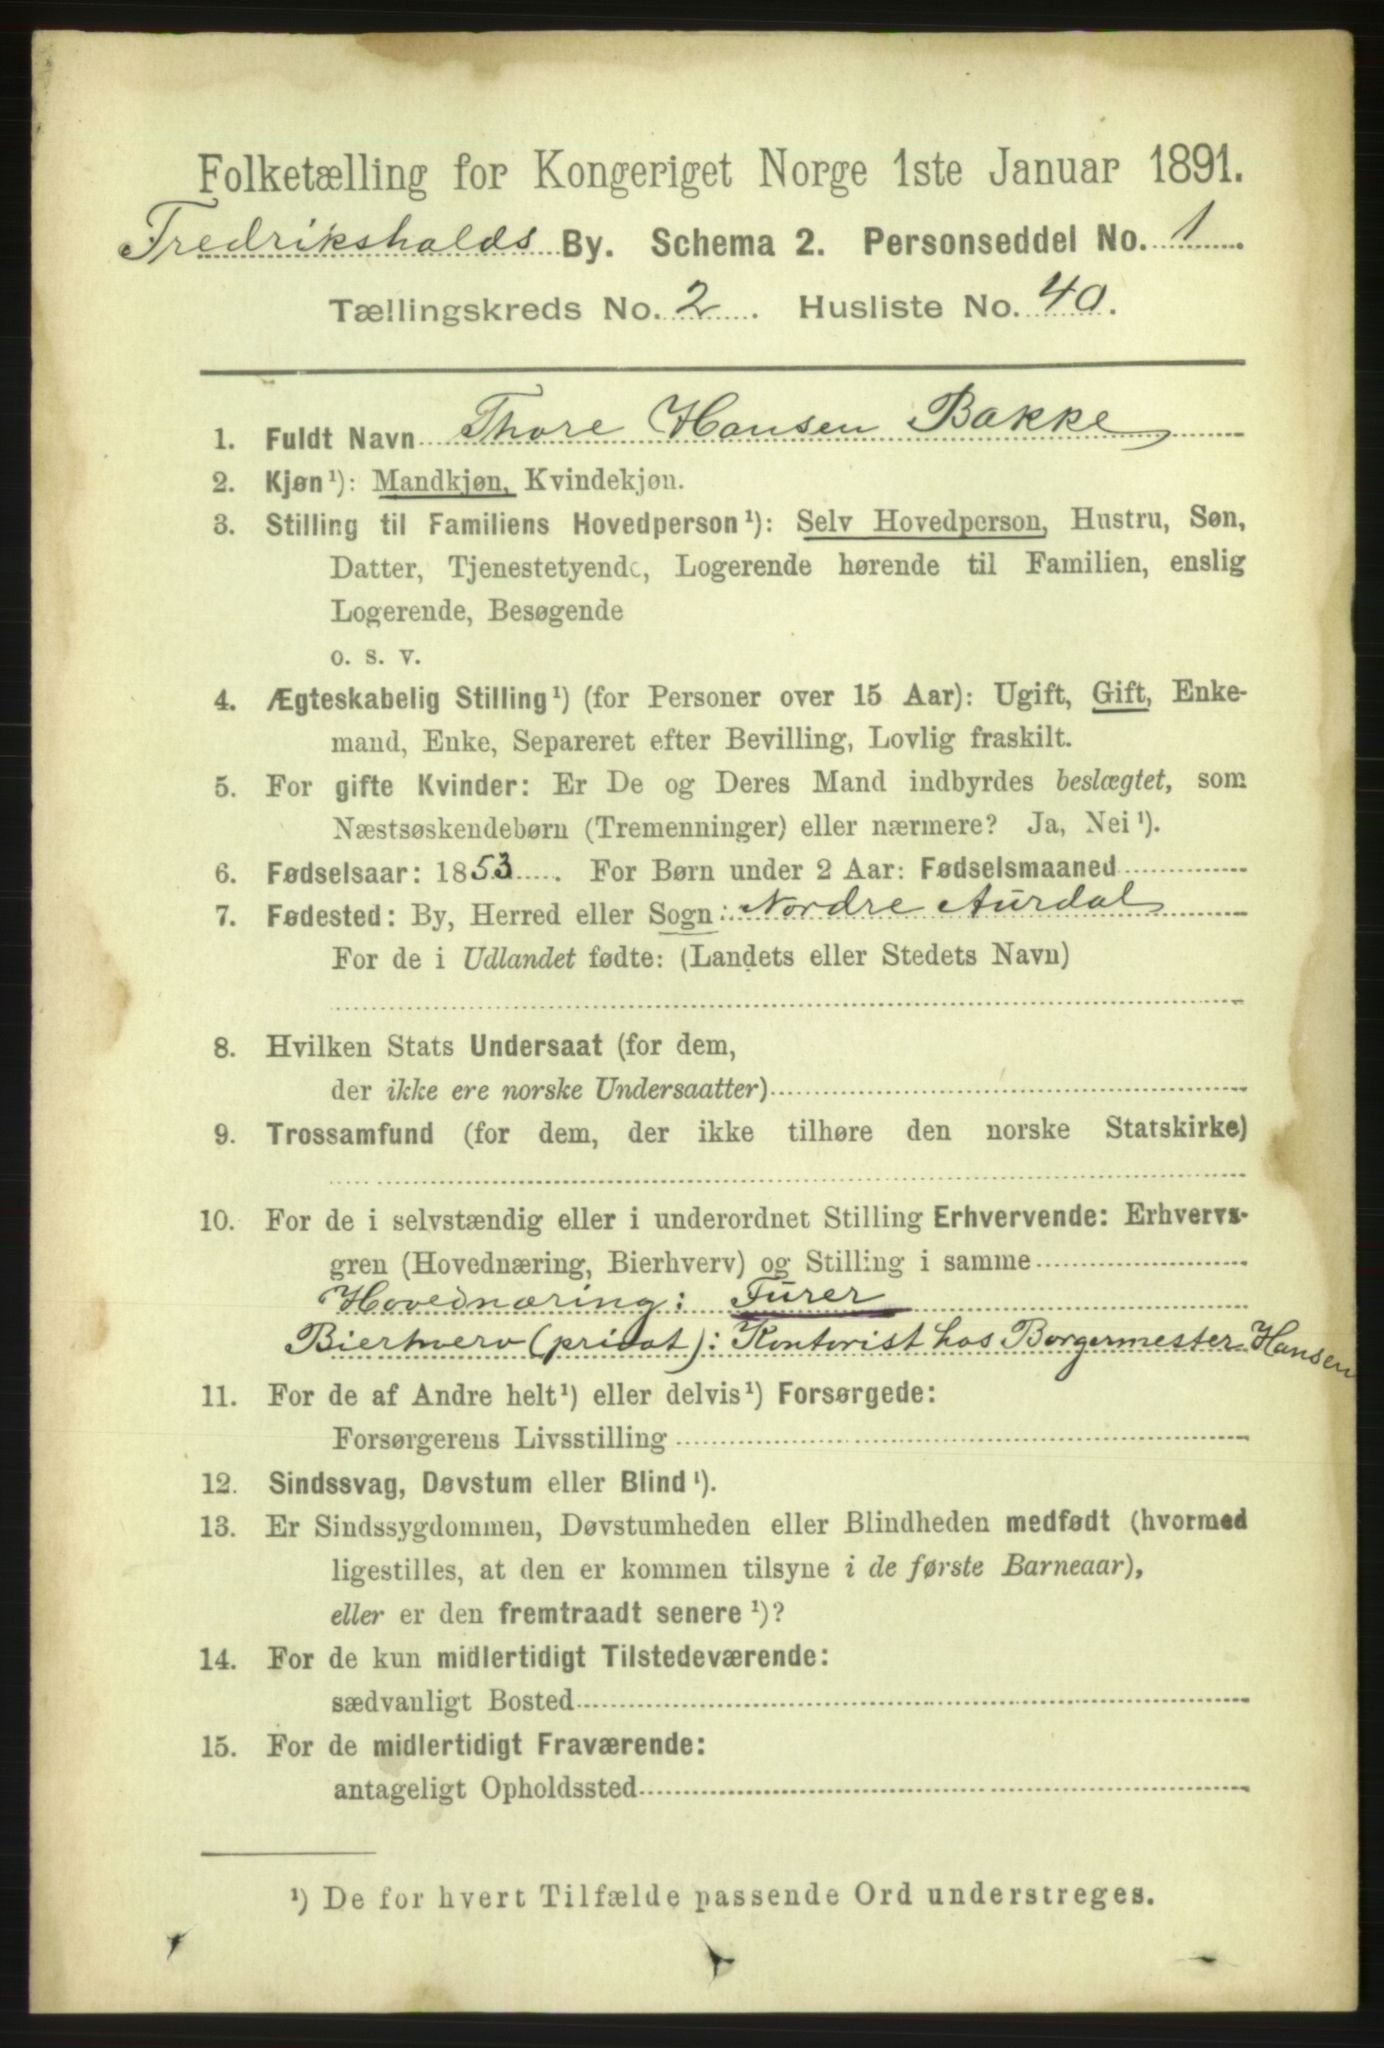 Folketælling for Kongeriget Norge 1ste Januar 1891.
Fredrikshalds By. Schema 2. Personseddel No. 1.
Tællingskreds No. 2. Husliste No. 40.
1. Fuldt Navn Thore Hansen Bakke
2. Kjøn¹): Mandkjøn, Kvindekjøn.
3. Stilling til Familiens Hovedperson¹): Selv Hovedperson, Hustru, Søn,
Datter, Tjenestetyende, Logerende hørende til Familien, enslig
Logerende, Besøgende
o. s. v.
4. Ægteskabelig Stilling¹) (for Personer over 15 Aar): Ugift, Gift, Enke-
mand, Enke, Separeret efter Bevilling, Lovlig fraskilt.
5. For gifte Kvinder: Er De og Deres Mand indbyrdes beslægtet, som
Næstsøskendebørn (Tremenninger) eller nærmere? Ja, Nei¹).
6. Fødselsaar: 1853. For Børn under 2 Aar: Fødselsmaaned
7. Fødested: By, Herred eller Sogn: Nordre Aurdal
For de i Udlandet fødte: (Landets eller Stedets Navn)
8. Hvilken Stats Undersaat (for dem,
der ikke ere norske Undersaatter)
9. Trossamfund (for dem, der ikke tilhøre den norske Statskirke)
10. For de i selvstændig eller i underordnet Stilling Erhvervende: Erhvervs-
gren (Hovednæring, Bierhverv) og Stilling i samme
Hovednæring: Furer
Bierhverv (privat): Kontorist hos Borgermester Hansen
11. For de af Andre helt¹) eller delvis¹) Forsørgede:
Forsørgerens Livsstilling
12. Sindssvag, Døvstum eller Blind¹).
13. Er Sindssygdommen, Døvstumheden eller Blindheden medfødt (hvormed
ligestilles, at den er kommen tilsyne i de første Barneaar),
eller er den fremtraadt senere¹)?
14. For de kun midlertidigt Tilstedeværende:
sædvanligt Bosted
15. For de midlertidigt Fraværende:
antageligt Opholdssted
¹) De for hvert Tilfælde passende Ord understreges.